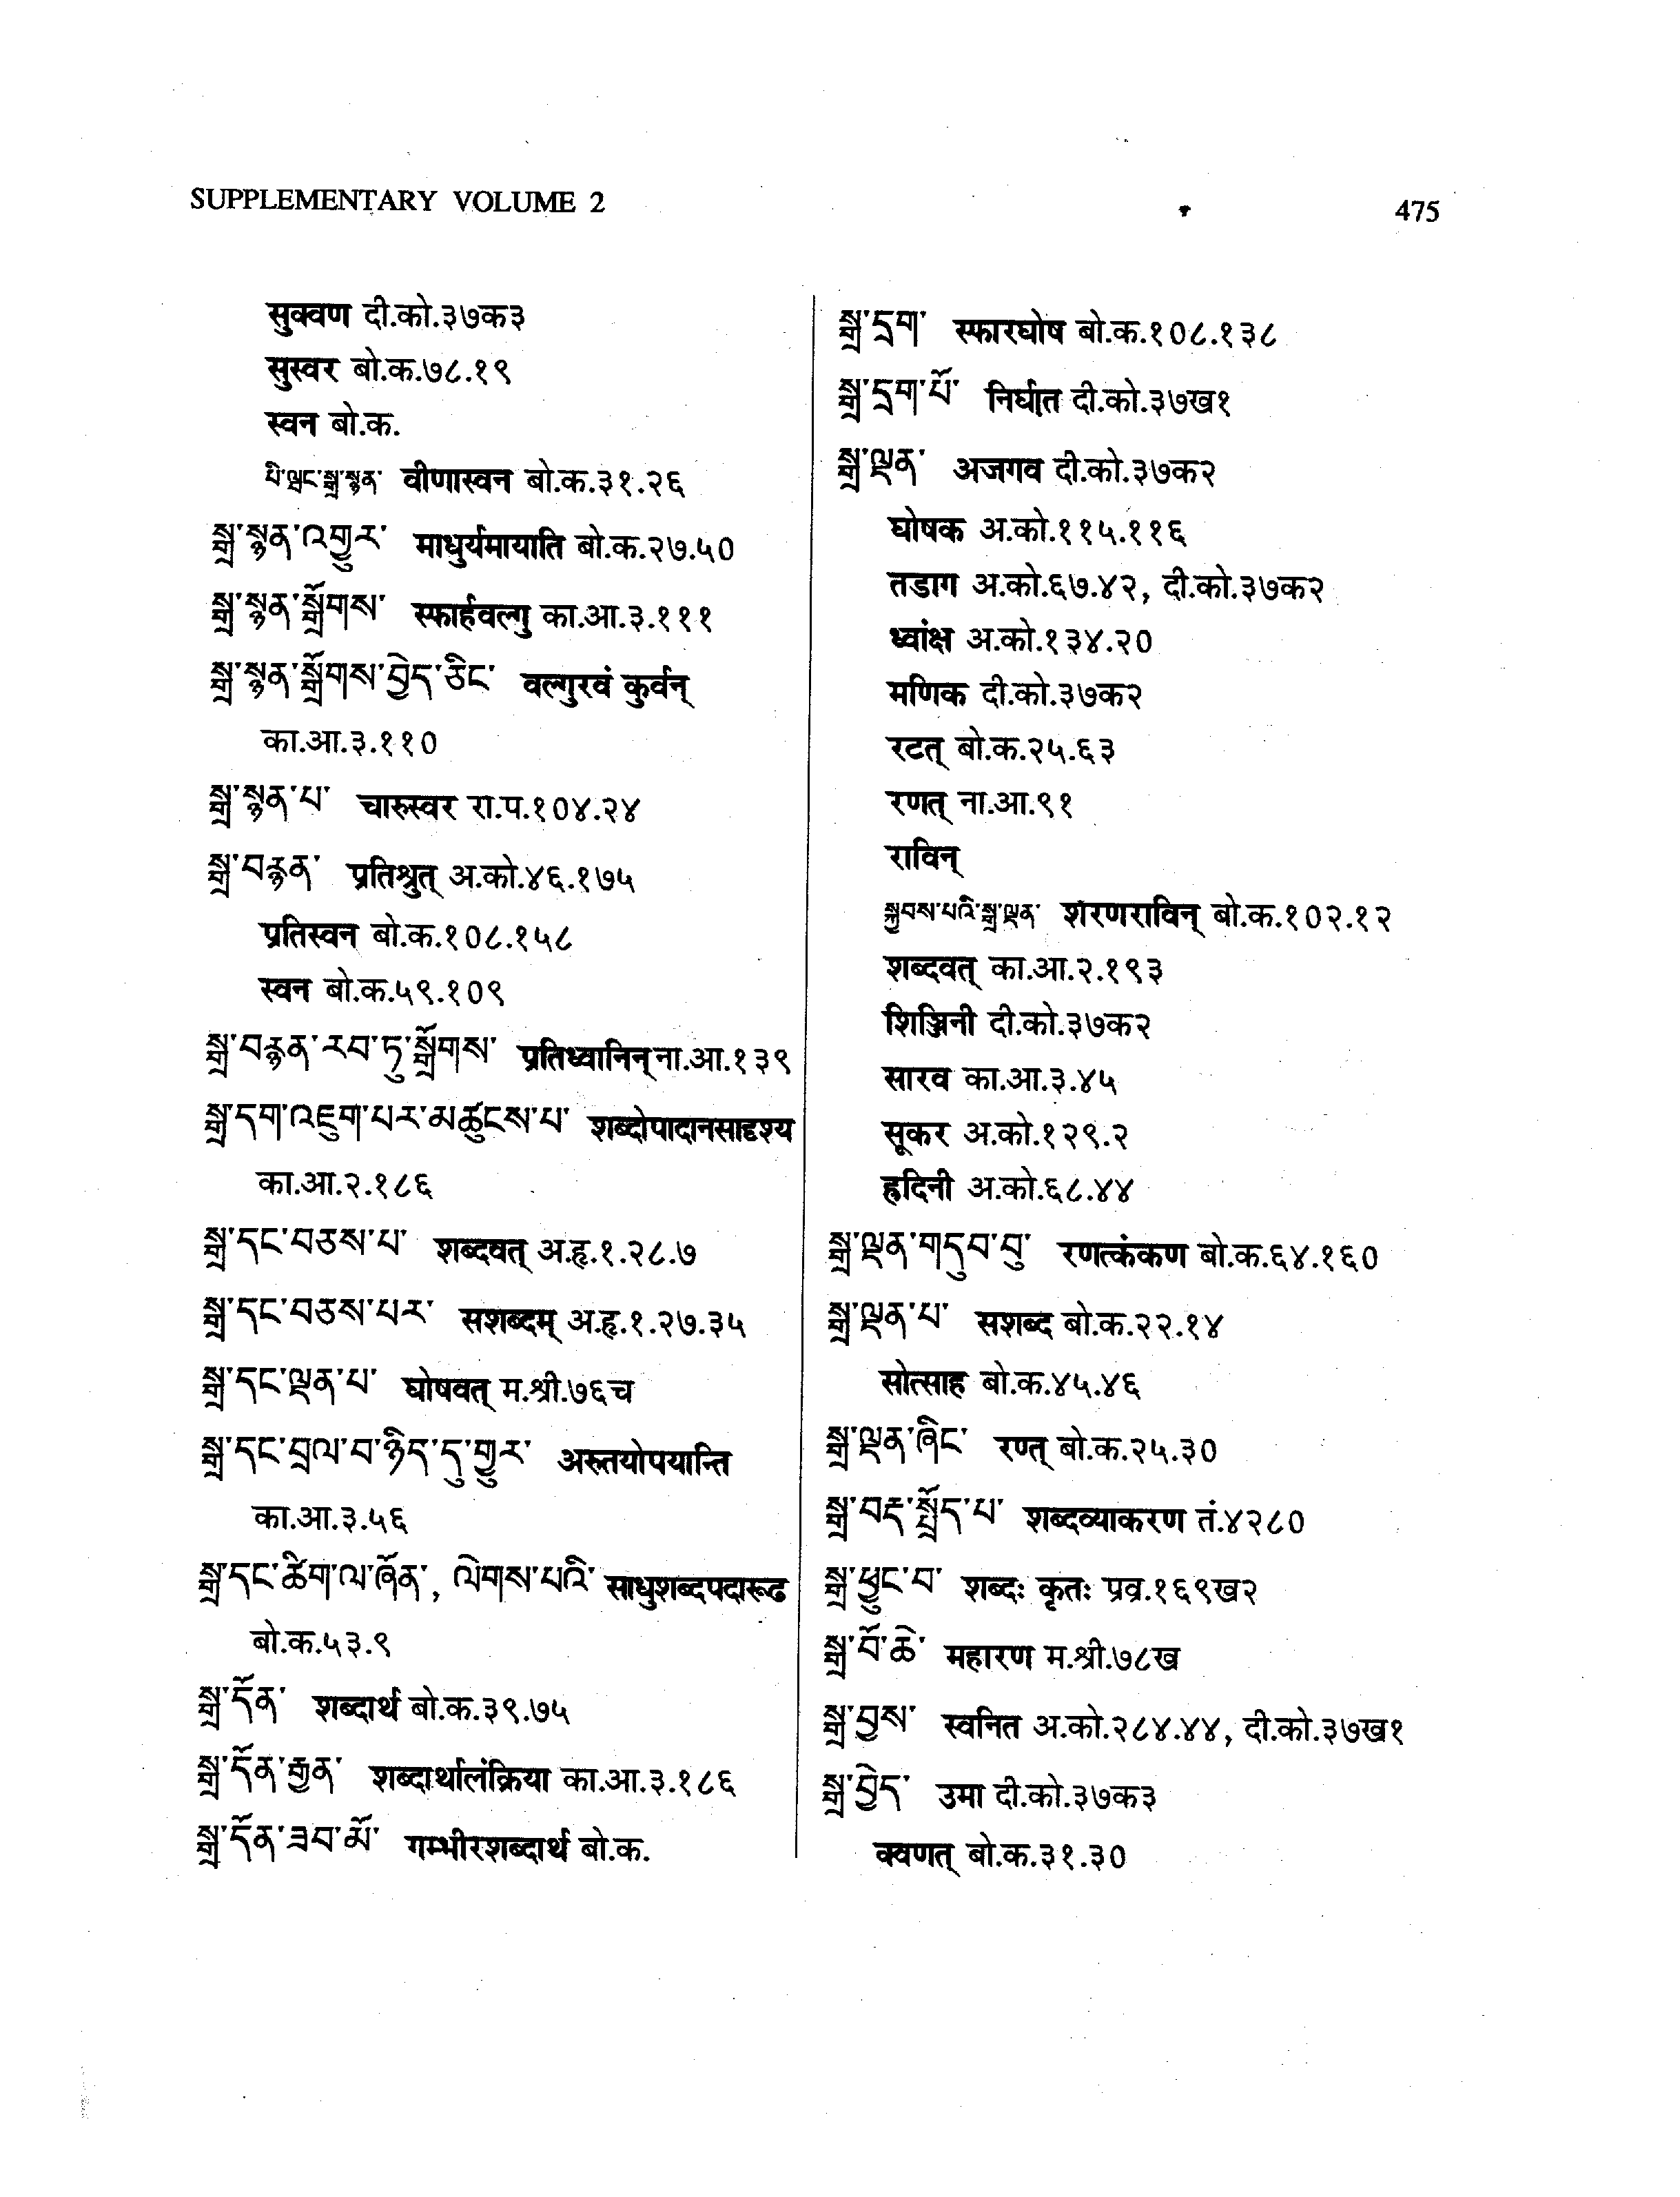 SUPPLEMENTARY VOLUME 2
475
सुक्वण दी.को.३७क३
सुस्वर बो.क.७८.१९
स्वन बो.क.
པི་ཝང་སྒྲ་སྙན་ वीणास्वन बो.क.३१.२६
སྒྲ་སྙན་འགྱུར་ माधुर्यमायाति बो.क.२७.५०
སྒྲ་སྙན་སྒྲོགས་ स्फार्हवल्गु का.आ.३.१११
སྒྲ་སྙན་སྒྲོགས་བྱེད་ཅིང་ वल्गुरवं कुर्वन्
का.आ.३.११०
སྒྲ་སྙན་པ་ चारुस्वर रा.प.१०४.२४
སྒྲ་བརྙན་ प्रतिश्रुत् अ.को.४६.१७५
प्रतिस्वन बो.क.१०८.१५८
स्वन बो.क.५९.१०९
སྒྲ་བརྙན་རབ་ཏུ་སྒྲོགས་ प्रतिध्वानिन् ना.आ.१३९
སྒྲ་དག་འཇུག་པར་མཚུངས་པ་ शब्दोपादानसादृश्य
का.आ.२.१८६
སྒྲ་དང་བཅས་པ་ शब्दवत् अ.हृ.१.२८.७
སྒྲ་དང་བཅས་པར་ सशब्दम् अ.हृ.१.२७.३५
སྒྲ་དང་ལྡན་པ་ घोषवत् म.श्री.७६च
སྒྲ་དང་བྲལ་བ་ཉིད་དུ་གྱུར་ अरुतयोपयान्ति
का.आ.३.५६
སྒྲ་དང་ཚིག་ལ་ཞོན་, ལེགས་པའི་ साधुशब्दपदारूढ
बो.क.५३.९
སྒྲ་དོན་ शब्दार्थ बो.क.३९.७५
སྒྲ་དོན་རྒྱན་ शब्दार्थालंक्रिया का.आ.३.१८६
སྒྲ་དོན་ཟབ་མོ་ गम्भीरशब्दार्थ बो.क.
སྒྲ་དྲག་ स्फारघोष बो.क.१०८.१३८
སྒྲ་དྲག་པོ་ निर्घात दी.को.३७ख१
སྒྲ་ལྡན་ अजगव दी.को.३७क२
घोषक अ.को.११५.११६
तडाग अ.को.६७.४२, दी.को.३७क२
ध्वांक्ष अ.को.१३४.२०
मणिक दी.को.३७क२
रटत् बो.क.२५.६३
रणत् ना.आ.९१
राविन्
སྐྱབས་པའི་སྒྲ་ལྡན་ शरणराविन् बो.क.१०२.१२
शब्दवत् का.आ.२.१९३
शिञ्जिनी दी.को.३७क२
सारव का.आ.३.४५
सूकर अ.को.१२९.२
ह्रदिनी अ.को.६८.४४
སྒྲ་ལྡན་གདུབ་བུ་ रणत्कंकण बो.क.६४.१६०
སྒྲ་ལྡན་པ་ सशब्द बो.क.२२.१४
सोत्साह बो.क.४५.४६
སྒྲ་ལྡན་ཞིང་ रणत् बो.क.२५.३०
སྒྲ་བརྡ་སྤྲོད་པ་ शब्दव्याकरण तं.४२८०
སྒྲ་ཕྱུང་བ་ शब्दः कृतः प्रव्र.१६९ख२
སྒྲ་བོ་ཆེ་ महारण म.श्री.७८ख
སྒྲ་བྱས་ स्वनित अ.को.२८४.४४, दी.को.३७ख१
སྒྲ་བྱེད་ उमा दी.को.३७क३
क्वणत् बो.क.३१.३०